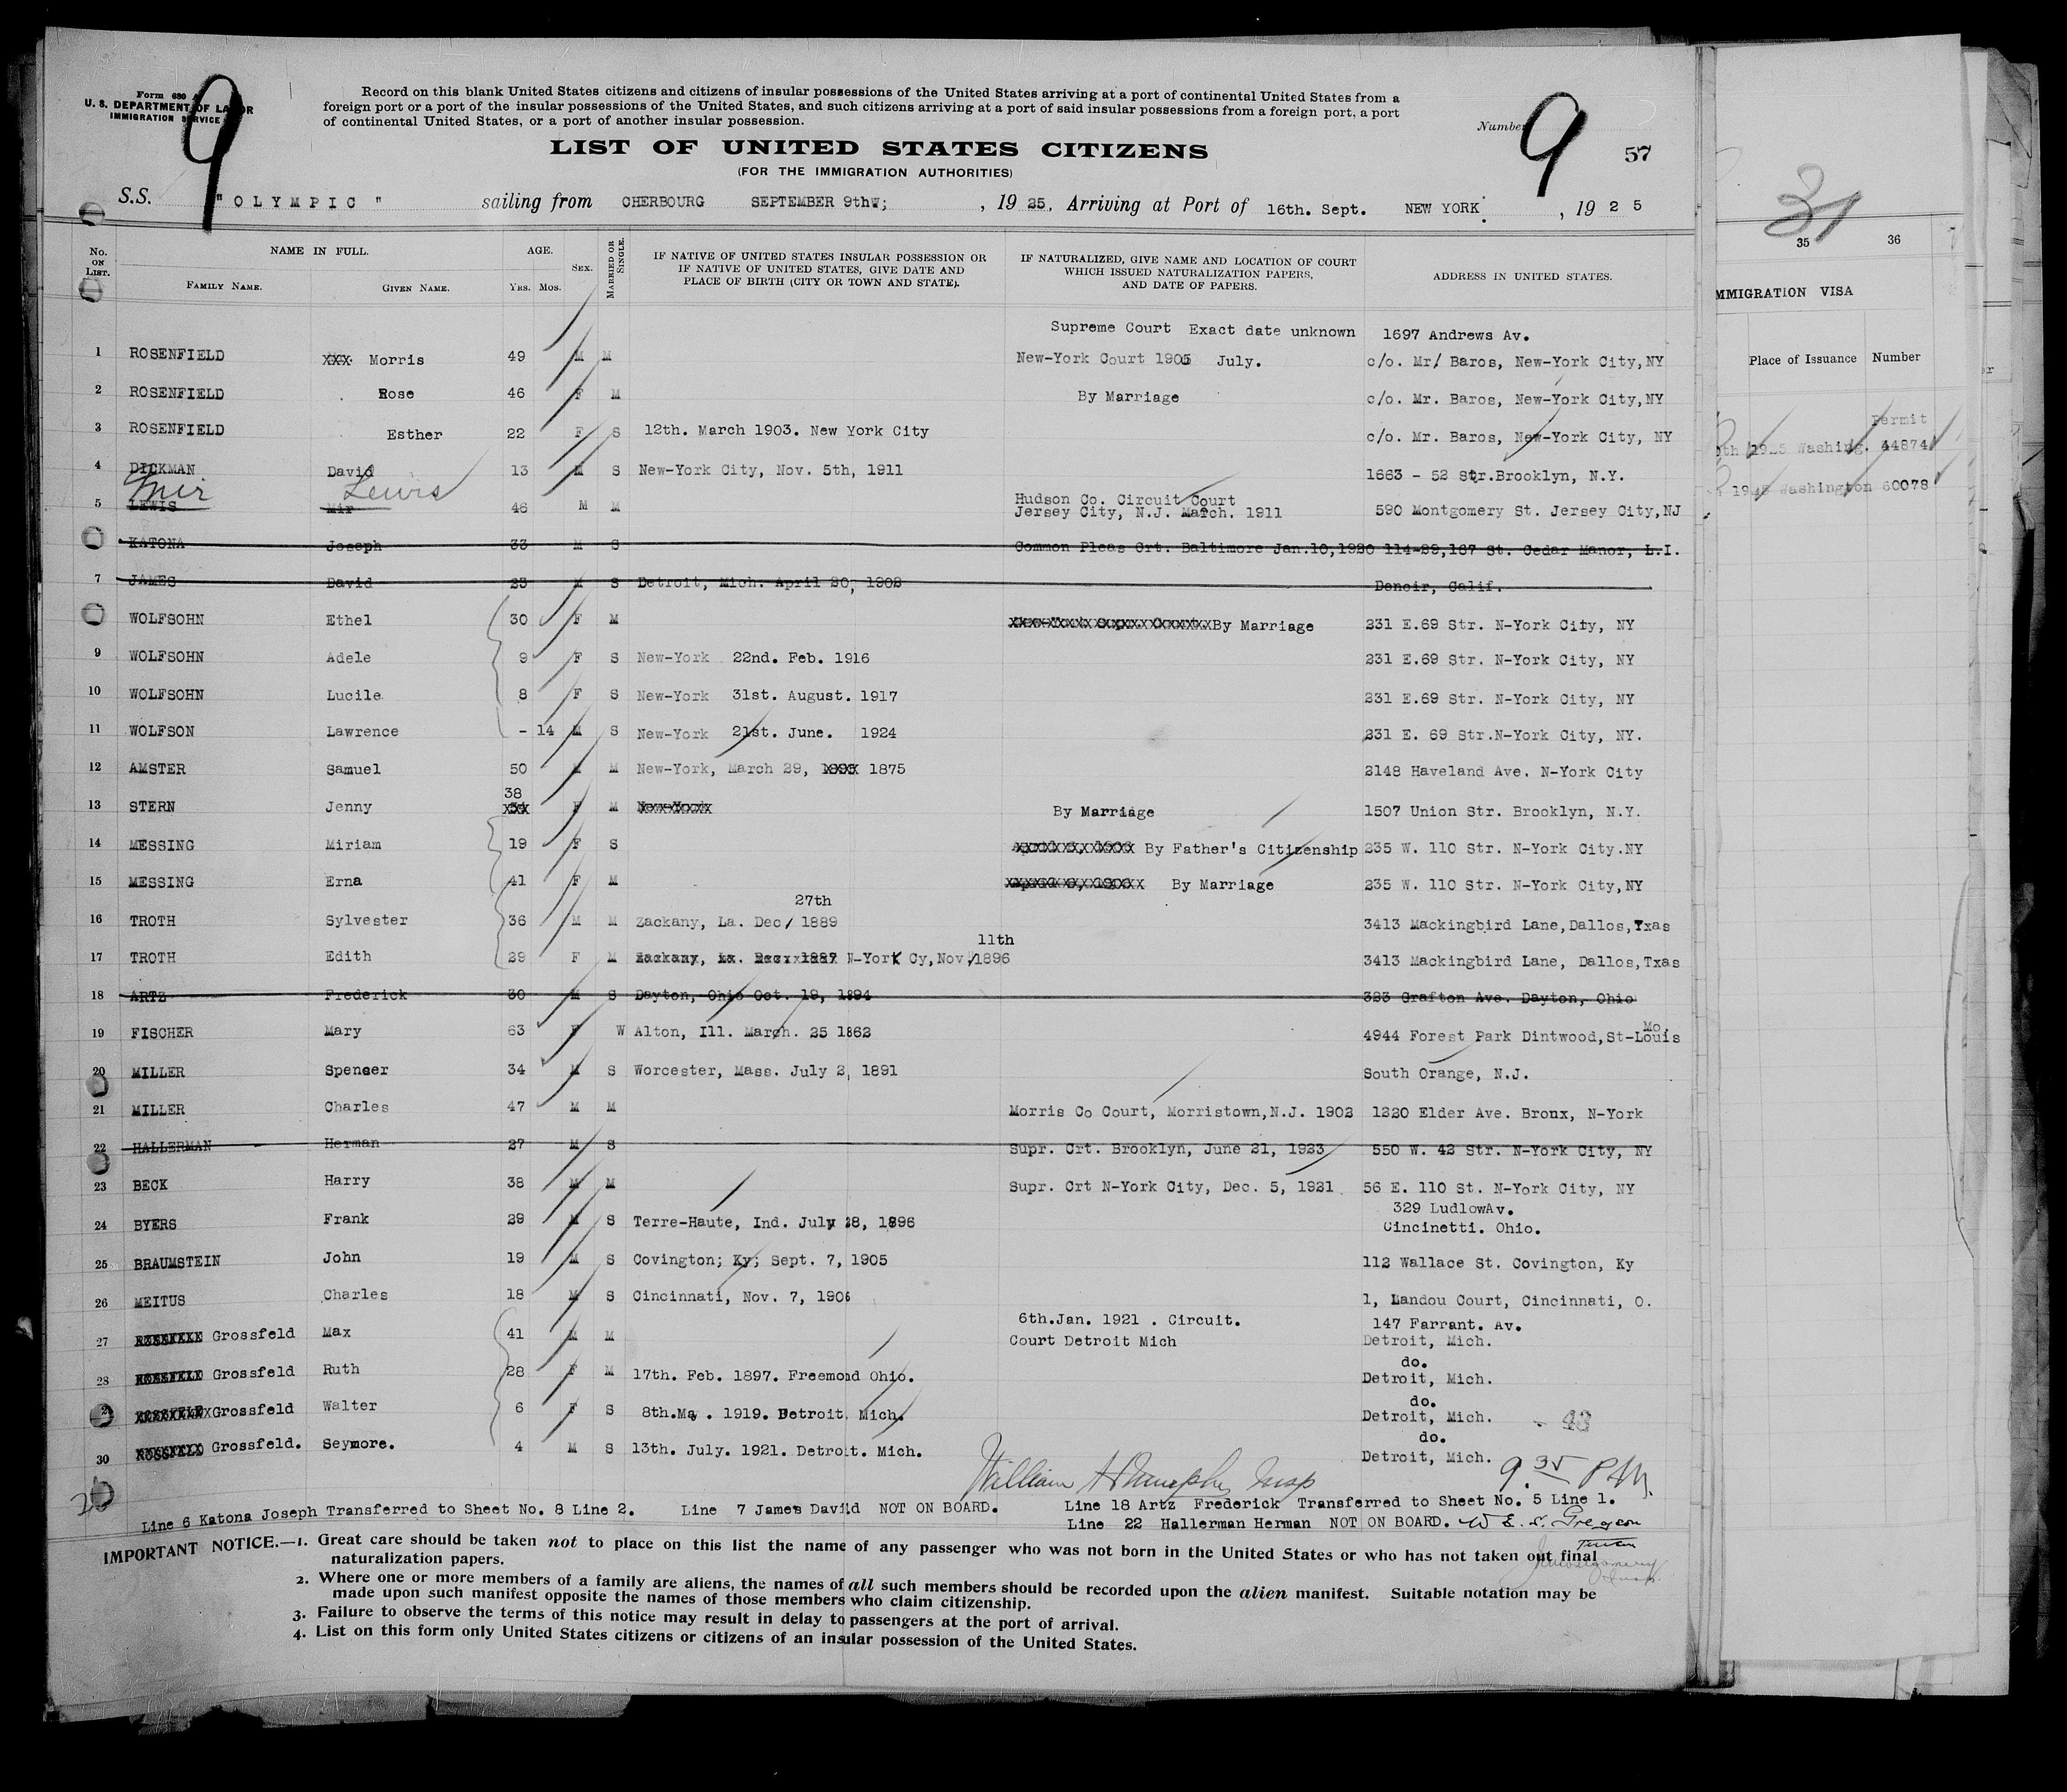 Form 630 A
U. S. DEPARTMENT OF LABOR
IMMIGRATION SERVICE
9
Record on this blank United States citizens and citizens of insular possessions of the United States arriving at a port of continental United States from a
foreign port or a port of the insular possessions of the United States, and such citizens arriving at a port of said insular possessions from a foreign port, a port
of continental United States, or a port of another insular possession.
Number 9 57
LIST OF UNITED STATES CITIZENS
(FOR THE IMMIGRATION AUTHORITIES)
S.S. "OLYMPIC" sailing from CHERBOURG SEPTEMBER 9thW; , 19 25, Arriving at Port of 16th. Sept. NEW YORK: , 19 2 5
No. ON LIST. NAME IN FULL. FAMILY NAME. GIVEN NAME. AGE. YRS. MOS. SEX. MARRIED OR SINGLE. IF NATIVE OF UNITED STATES INSULAR POSSESSION OR IF NATIVE OF UNITED STATES, GIVE DATE AND PLACE OF BIRTH (CITY OR TOWN AND STATE). IF NATURALIZED, GIVE NAME AND LOCATION OF COURT WHICH ISSUED NATURALIZATION PAPERS, AND DATE OF PAPERS. ADDRESS IN UNITED STATES.
Supreme Court Exact date unknown 1697 Andrews Av.
1 ROSENFIELD XXX Morris 49 M M New-York Court 1905 July. c/o. Mr/ Baros, New-York City,NY
2 ROSENFIELD Rose 46 F M By Marriage c/o. Mr. Baros, New-York City,NY
3 ROSENFIELD Esther 22 F S 12th. March 1903. New York City c/o. Mr. Baros, New-York City, NY
4 DICKMAN David 13 M S New-York City, Nov. 5th, 1911 1663 - 52 Str.Brooklyn, N.Y.
Mir Lewis
Hudson Co. Circuit Court
5 LEWIS Mir 46 M M Jersey City, N.J. March. 1911 590 Montgomery St. Jersey City,NJ
KATONA Joseph 33 M S Common Pleas Crt. Baltimore Jan.10,1920 114-29,187 St. Cedar Manor, L.I.
7 JAMES David 23 M S Detroit, Mich. April 20, 1902 Denoir, Calif.
WOLFSOHN Ethel 30 F M By Marriage 231 E.69 Str. N-York City, NY
9 WOLFSOHN Adele 9 F S New-York 22nd. Feb. 1916 231 E.69 Str. N-York City, NY
10 WOLFSOHN Lucile 8 F S New-York 31st. August. 1917 231 E.69 Str. N-York City, NY
11 WOLFSON Lawrence - 14 M S New-York 21st. June. 1924 231 E. 69 Str.N-York City, NY.
12 AMSTER Samuel 50 M M New-York, March 29, 1875 2148 Haveland Ave. N-York City
38
13 STERN Jenny F M By Marriage 1507 Union Str. Brooklyn, N.Y.
14 MESSING Miriam 19 F S By Father's Citizenship 235 W. 110 Str. N-York City.NY
15 MESSING Erna 41 F M By Marriage 235 W. 110 Str. N-York City,NY
27th
16 TROTH Sylvester 36 M M Zackany, La. Dec/ 1889 3413 Mackingbird Lane,Dallos,Txas
11th
17 TROTH Edith 29 F M Zackany, La. Dec. 1887 N-York Cy,Nov/1896 3413 Mackingbird Lane, Dallos,Txas
18 ARTZ Frederick 30 M S Dayton, Ohio Oct. 19, 1894 323 Grafton Ave. Dayton, Ohio
19 FISCHER Mary 63 F W Alton, Ill. March. 25 1862 4944 Forest Park Dintwood,St-Louis Mo.
20 MILLER Spenser 34 M S Worcester, Mass. July 2, 1891 South Orange, N.J.
21 MILLER Charles 47 M M Morris Co Court, Morristown,N.J. 1902 1220 Elder Ave. Bronx, N-York
22 HALLERMAN Herman 27 M S Supr. Crt. Brooklyn, June 21, 1923 550 W. 42 Str. N-York City, NY
23 BECK Harry 38 M M Supr. Crt N-York City, Dec. 5, 1921 56 E. 110 St. N-York City, NY
329 LudlowAv.
24 BYERS Frank 29 M S Terre-Haute, Ind. July 28, 1896 Cincinetti. Ohio.
25 BRAUMSTEIN John 19 M S Covington; Ky; Sept. 7, 1905 112 Wallace St. Covington, Ky
26 MEITUS Charles 18 M S Cincinnati, Nov. 7, 1906 1, Landou Court, Cincinnati, O.
6th.Jan. 1921 . Circuit. 147 Farrant. Av.
27 Grossfeld Max 41 M M Court Detroit Mich Detroit, Mich.
do.
28 Grossfeld Ruth 28 F M 17th. Feb. 1897. Freemond Ohio. Detroit, Mich.
do.
Grossfeld Walter 6 F S 8th.May . 1919. Detroit. Mich. Detroit, Mich. - 43
do.
30 Grossfeld. Seymore. 4 M S 13th. July. 1921. Detroit. Mich. Detroit, Mich.
9.35 PM.
William Insp
Line 6 Katona Joseph Transferred to Sheet No. 8 Line 2. Line 7 James David NOT ON BOARD. Line 18 Artz Frederick Transferred to Sheet No. 5 Line 1.
Line 22 Hallerman Herman NOT ON BOARD. W E. S.
IMPORTANT NOTICE.—1. Great care should be taken not to place on this list the name of any passenger who was not born in the United States or who has not taken out final
naturalization papers.
2. Where one or more members of a family are aliens, the names of all such members should be recorded upon the alien manifest. Suitable notation may be
made upon such manifest opposite the names of those members who claim citizenship.
3. Failure to observe the terms of this notice may result in delay to passengers at the port of arrival.
4. List on this form only United States citizens or citizens of an insular possession of the United States.
31
35 36
MMIGRATION VISA
Place of Issuance Number
Permit
1925 Washing. 44874
Washington 60078